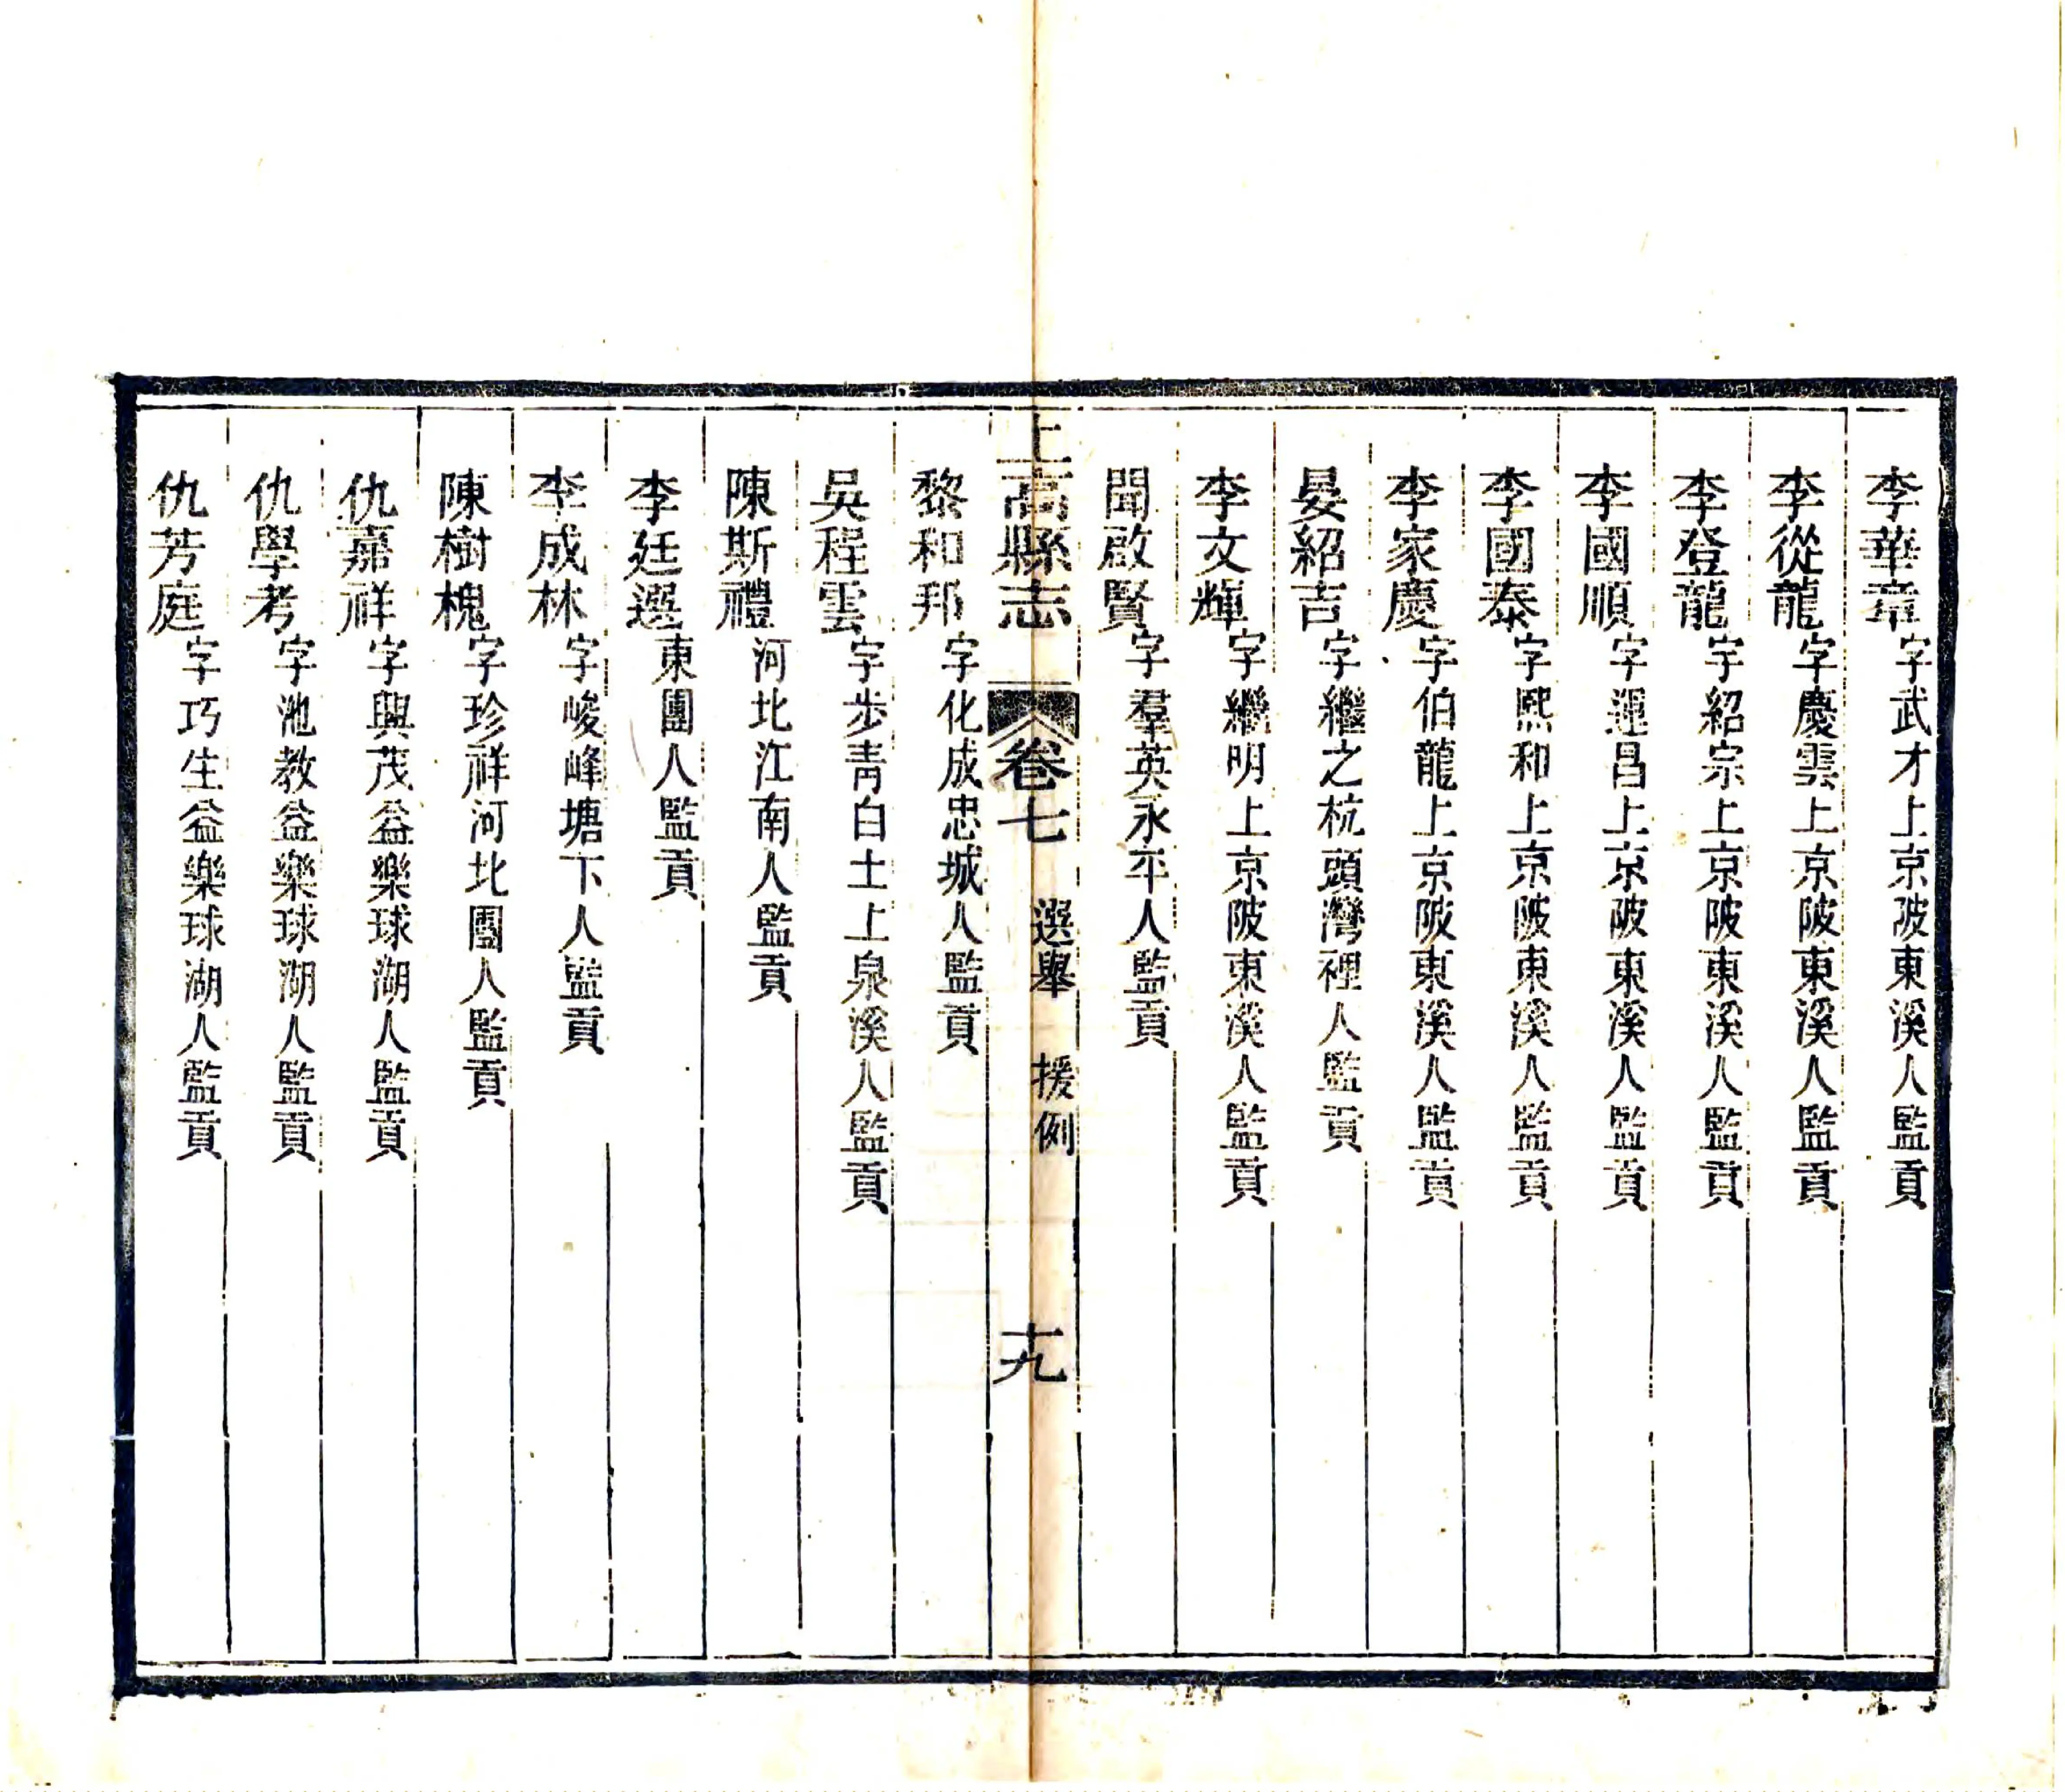 李華章字武才上京陂東溪人監貢
李從龍字慶雲上京陂東溪人監貢
李登龍字紹宗上京陂東溪人監貢
李國順字運昌上京陂東溪人監貢
李國泰字熙和上京陂東溪人監貢
李家慶字伯龍上京陂東溪人監貢
晏紹吉字繼之杭頭灣裡人監貢
李文輝字繼明上京陂東溪人監貢
聞啟賢字羣英永平人監貢
上高縣志 卷七 選舉 援例 十九
黎和邦字化成忠城人監貢
吳程雲字步青白土上泉溪人監貢
陳斯禮河北江南人監貢
李廷選東團人監貢
李成林字峻峰塘下人監貢
陳樹槐字珍祥河北團人監貢
仇嘉祥字興茂益樂球湖人監貢
仇學考字池教益樂球湖人監貢
仇芳庭字巧生益樂球湖人監貢